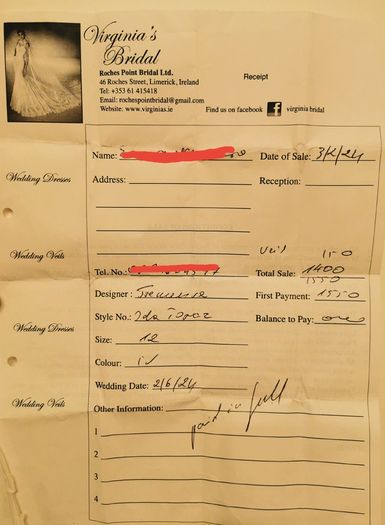 Virginia's
Bridal
Roches Point Bridal Ltd.
46 Roches Street, Limerick, Ireland
Tel: +353 61 415418
Email: rochespointbridal@gmail.com
Website: www.virginias.ie
Receipt
Find us on facebook f virginia bridal
Name: Date of Sale: 3/2/24
Wedding Dresses
Address: Reception:
Wedding Veils
Veil 150
Tel. No.: Total Sale: 1400
1550
Designer: First Payment: 1550
Wedding Dresses
Style No.: Ida Balance to Pay:
Size: 12
Colour: IV
Wedding Date: 2/6/24
Wedding Veils
Other Information: paid in full
1
2
3
4